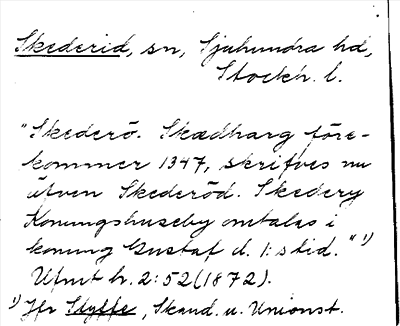 Skederid, sn, Sjuhundra hd,
Stockh. l.
"Skederö. Skædharg före-
kommer 1347, skrifves nu
äfven Skederöd. Skedery
Konungshuseby omtalas i
konung Gustaf d. 1:s tid." 1)
Ufmt h. 2:52 (1872).
1) Jfr Styffe, Skand. u. Unionst.